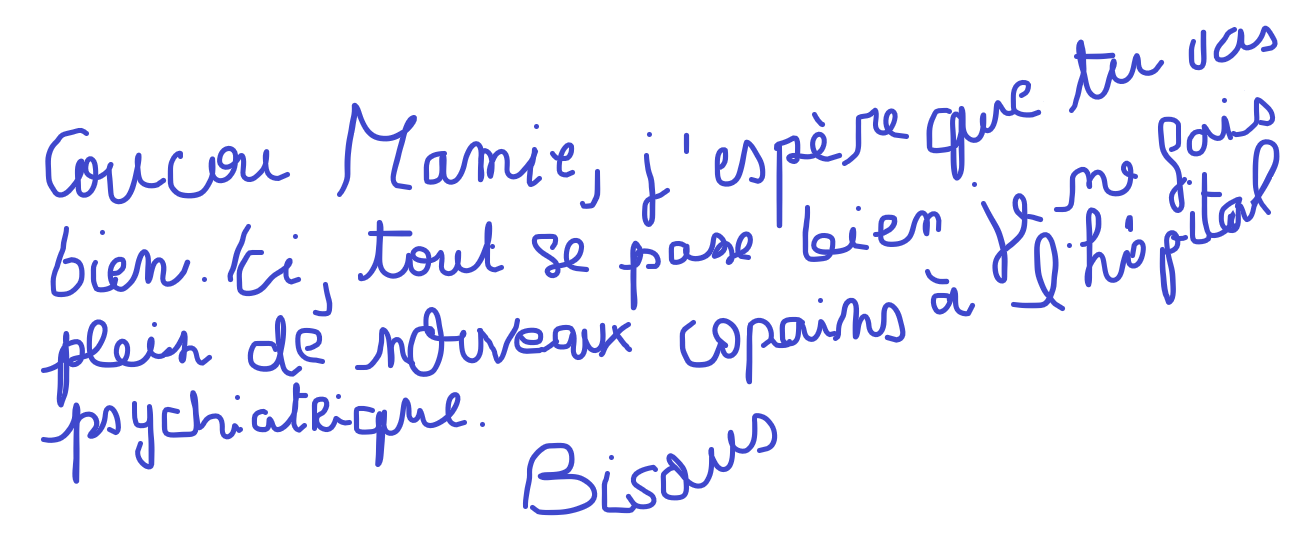 Coucou Mamie, j'espère que tu vas
bien. Ici, tout se passe bien. Je me fais
plein de nouveaux copains à l'hôpital
psychiatrique.
Bisous